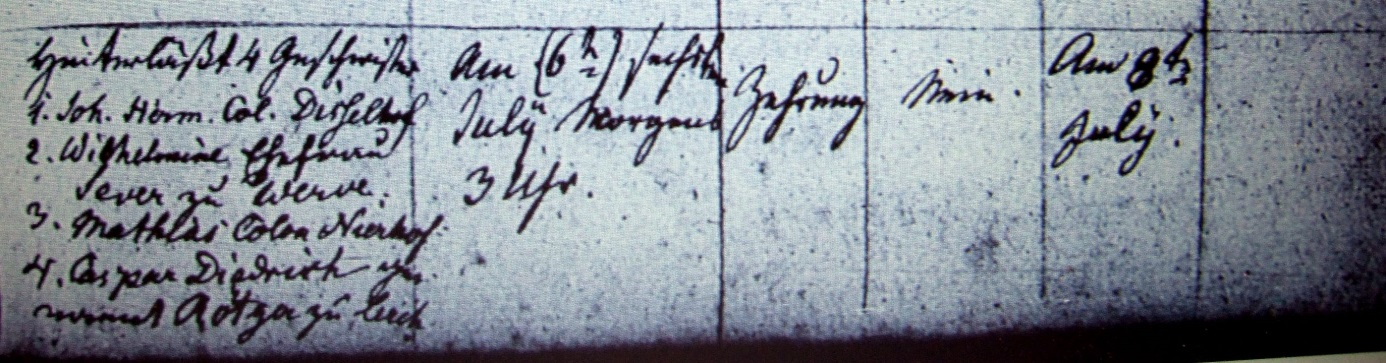 Hinterläßt 4 Geschwister
1. Joh. Herm. Col. Disselhof
2. Wilhelmine Ehefrau
Sever zu Werve.
3. Mathias Colon Nierhof
4. Caspar Diedrich ge-
nannt Rötger zu
Am (6t) sechsten
July Morgens
3 Uhr.
Zehrung
Nein.
Am 8t
July.